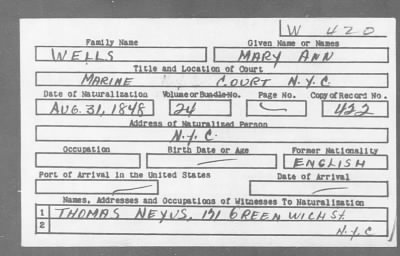 W 420
Family Name Given Name or Names
WELLS MARY ANN
Title and Location of Court
MARINE COURT N.Y.C.
Date of Naturalization Volume or Bundle No. Page No. Copy of Record No.
AUG. 31, 1848 24 422
Address of Naturalized Person
N.Y.C.
Occupation Birth Date or Age Former Nationality
ENGLISH
Port of Arrival in the United States Date of Arrival
Names, Addresses and Occupations of Witnesses To Naturalization
1 THOMAS NEYUS, 171 GREENWICH St.
2 N.Y.C.